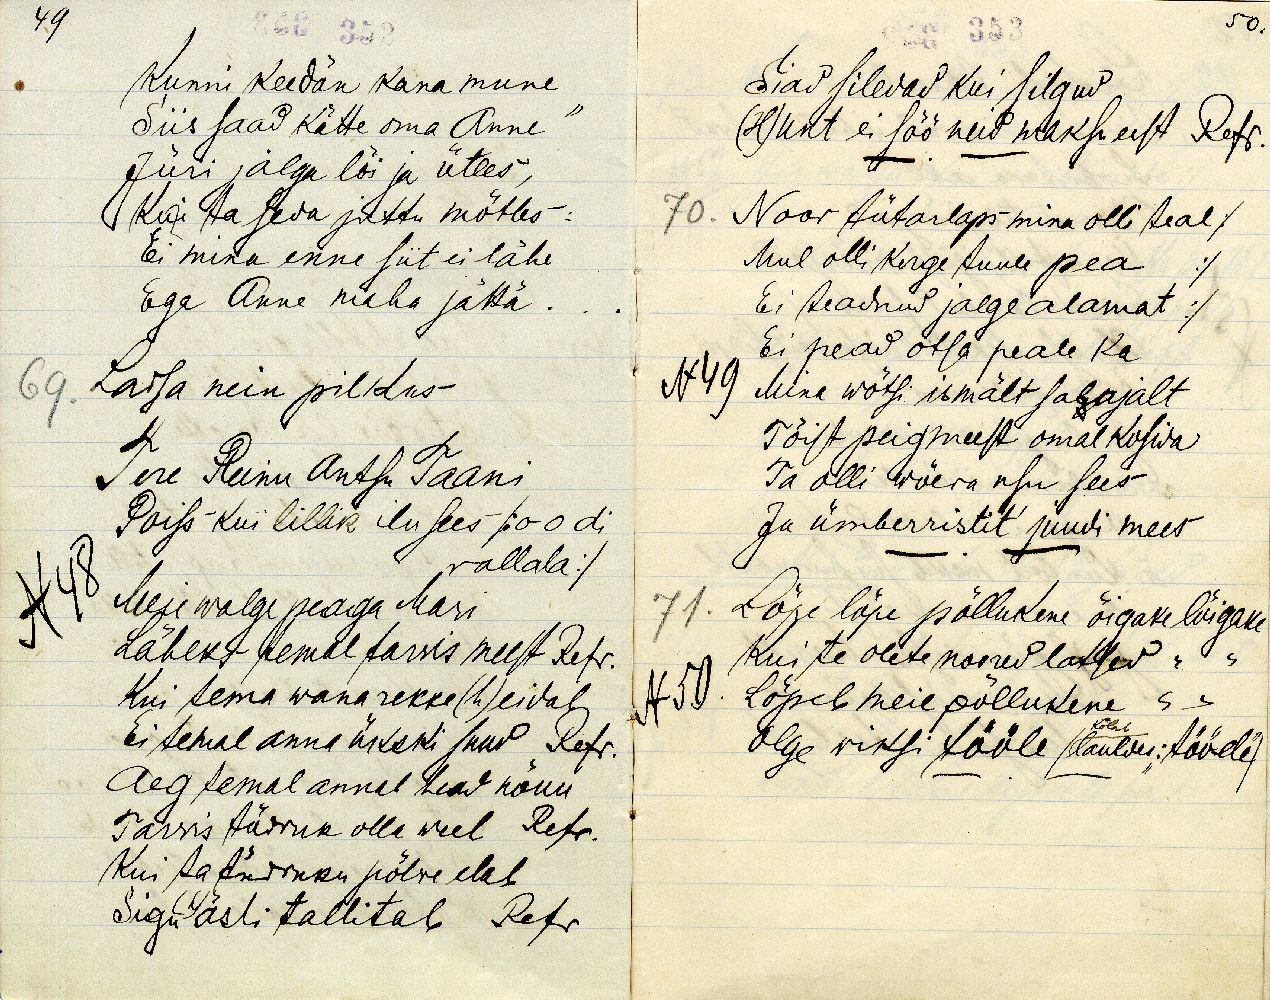 49
352
Kunni keedän kana mune
Siis saad kätte oma Anne"
Jüri jalga lõi ja ütles,
Kui ta seda juttu mõtles:
Ei mina enne siit ei lähe
Ega Anne maha jättä . . .
69. Lapsa nein pilkus
Tere Reinu Antsu Taani
Poiss kui lillik ilu sees /: o o di
rallala :/
N 48
Meie walge peaga Mari
Läheks temal tarwis meest Refr.
Kui tema wana rekke (h)eidab
Ei temal anna ükski suud Refr.
Aeg temal annab head nõuu
Tarwis tüdruk olla weel Refr.
Kui ta tüdruku põlve elab
Sigu (h)ästi tallitab Refr
50.
353
Siad siledad kui silgud
(H)unt ei söö neid maksu eest Refr.
70. Noor tütarlaps mina olli teal :/
Mul olli kerge tuule pea :/
Ei teadnud jalge alamat :/
Ei pead otsa peale ka
N 49
Mina wõtsi ilmält salajalt
Tõist peigmeest omal kosida
Ta olli wõera usu sees
Ja ümberristit' juudi mees
71. Lõpe lõpe põllukene õigake lõigake
Kui te olete noored latsed " "
N 50.
Lõpeb meie põllukene " "
Olge viksi tööle (lauldes: töödel)